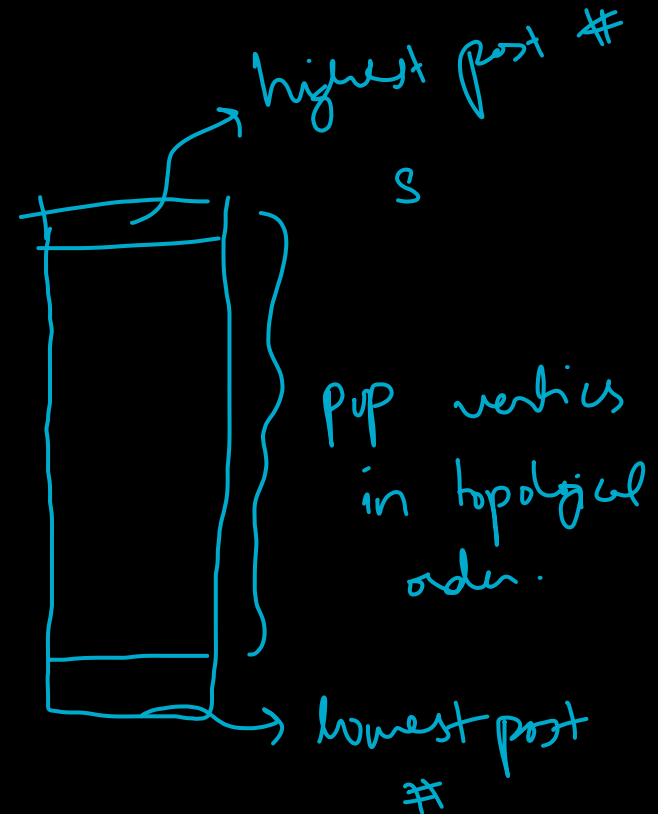 highest post #
S
pop vertices
in topological
order.
lowest post
#